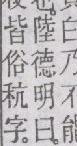 白乃不能
也陸德明曰
皆俗秔字。